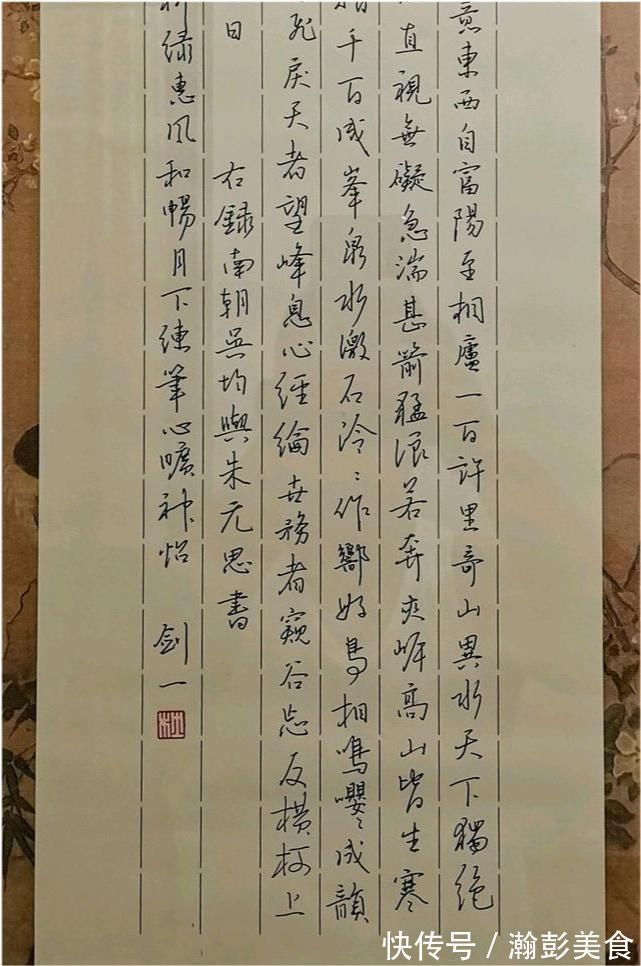 意東西自富陽至桐廬一百許里奇山異水天下獨絕
直視無礙急湍甚箭猛浪若奔夾岸高山皆生寒
千百成峯泉水激石泠〻作響好鳥相鳴嚶〻成韻
飛戾天者望峰息心經綸世務者窺谷忘反橫柯上
日 右録南朝吳均與朱元思書
綠惠風和暢月下練筆心曠神怡 劍一
快传号/瀚彭美食